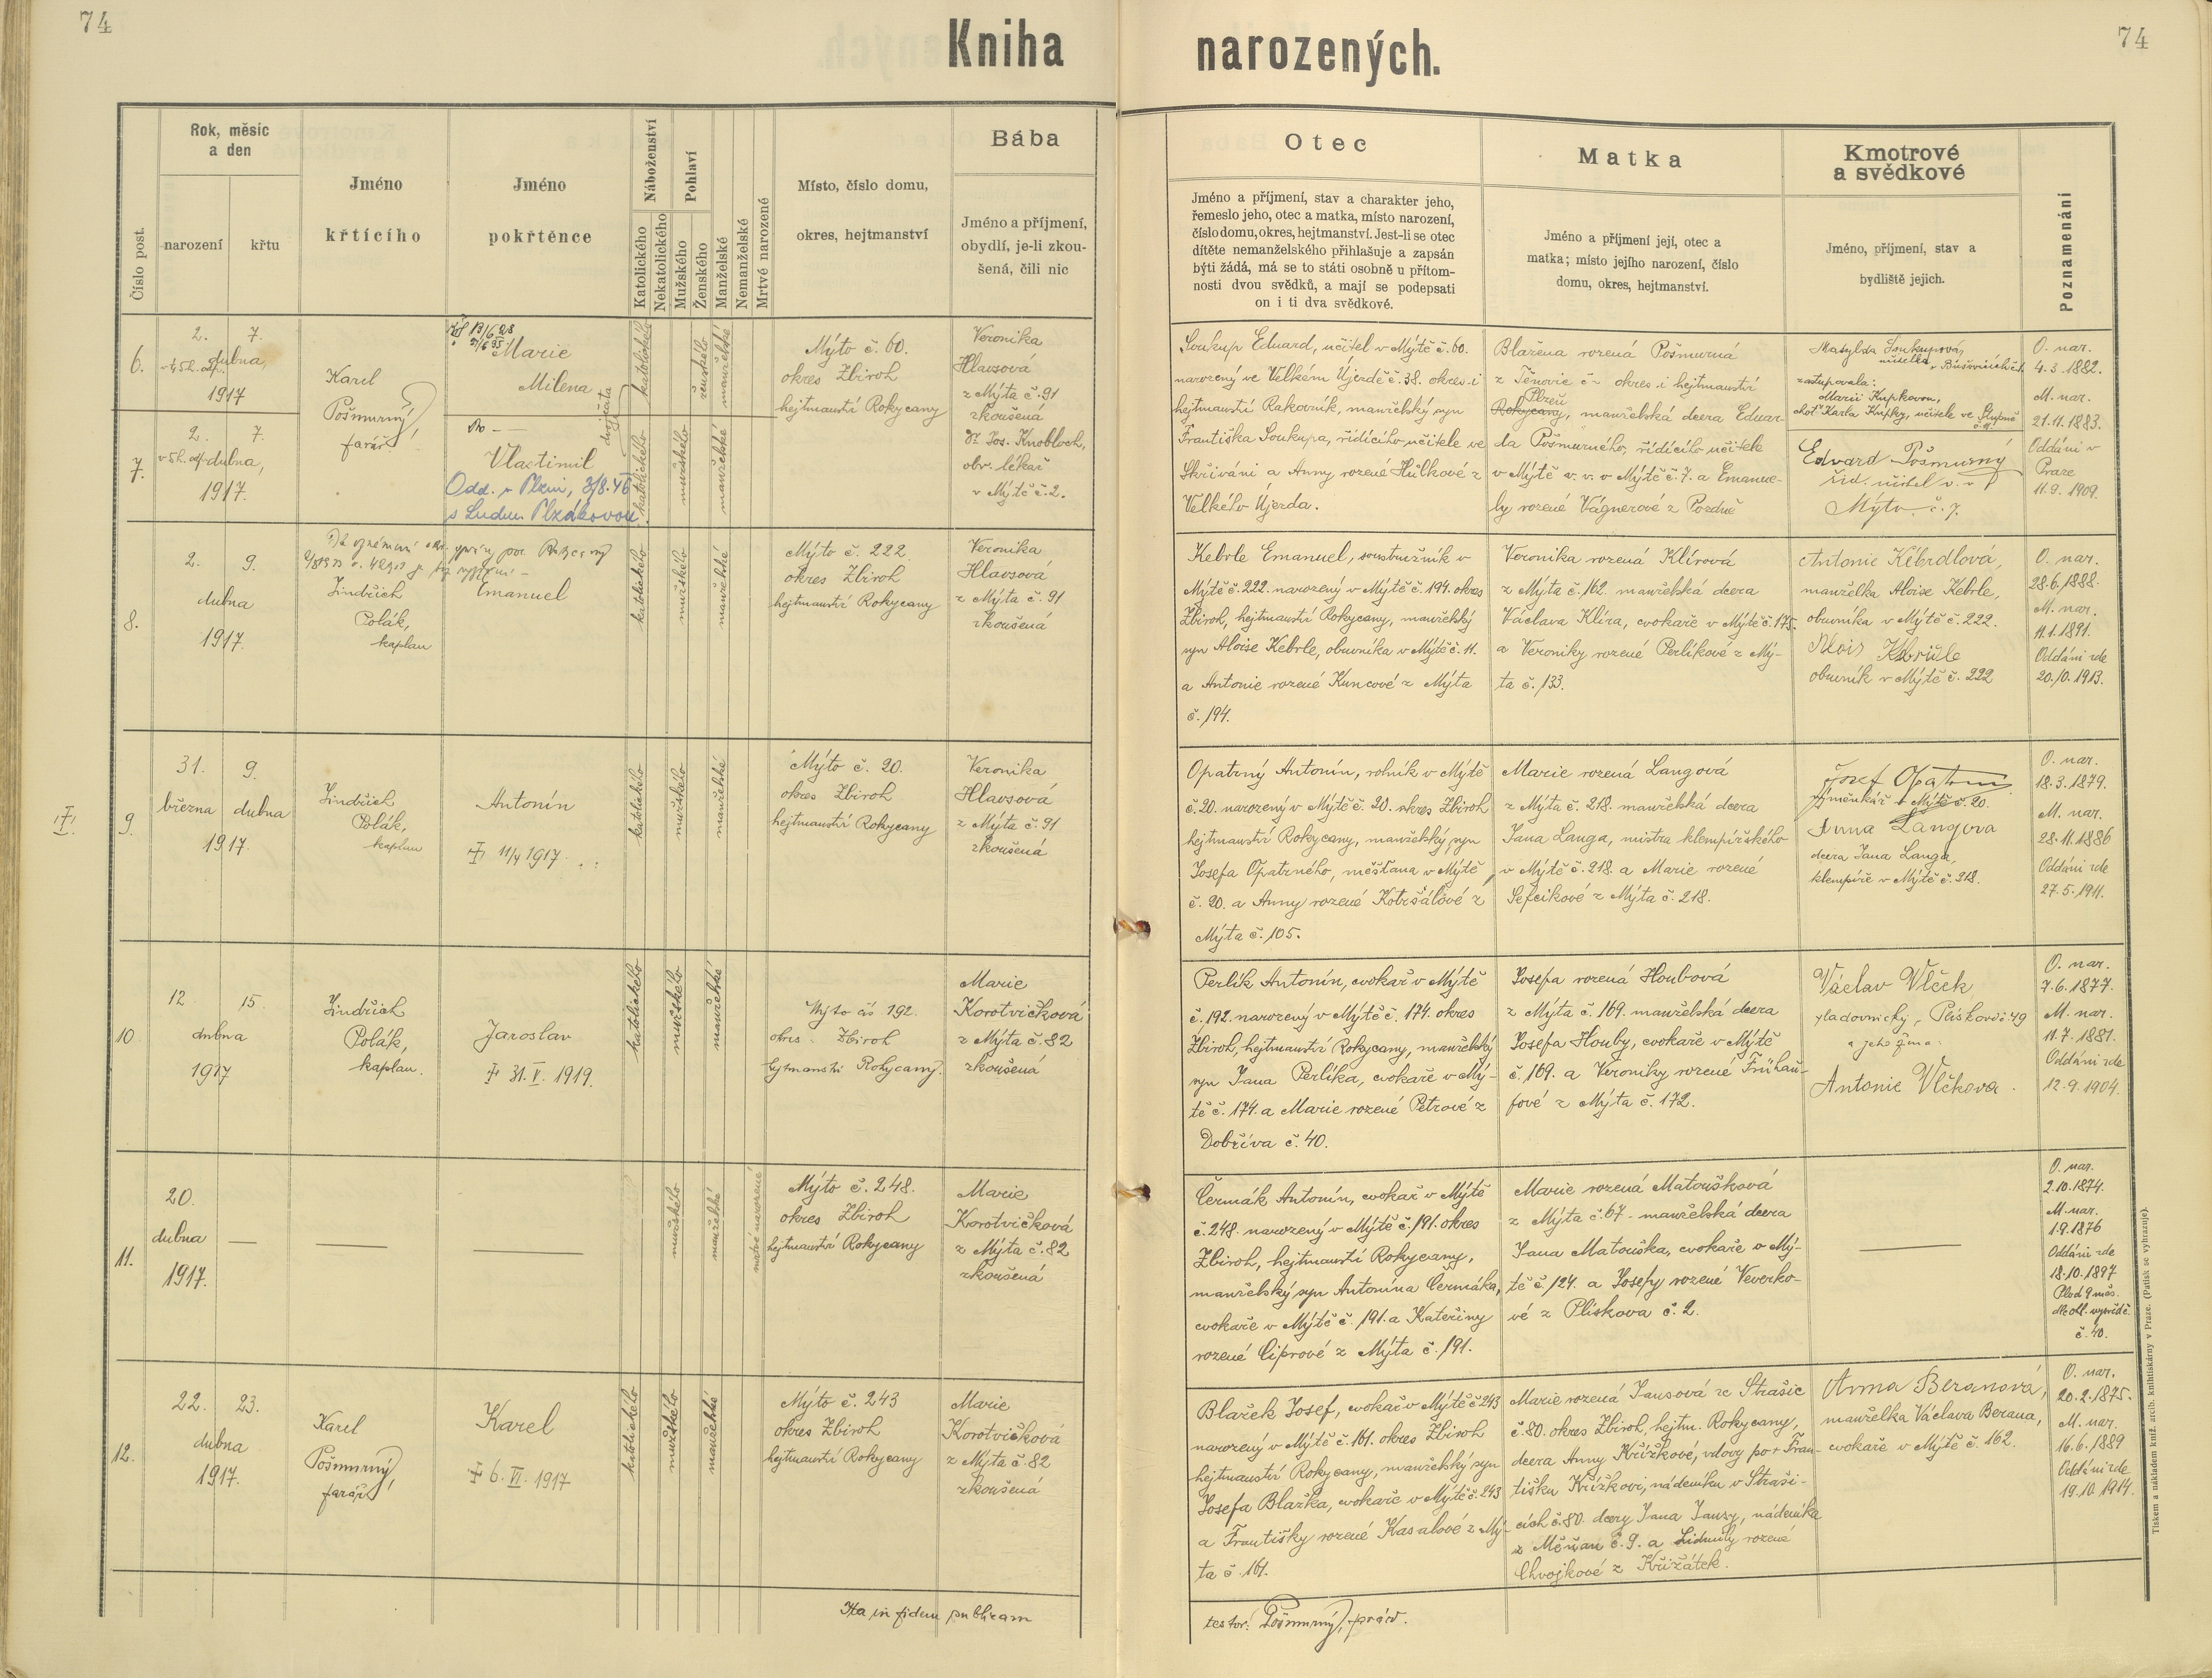 74
Kniha narozených.
74
Číslo post.
Rok, měsíc
a den
narození
křtu
Jméno
křtícího
Jméno
pokřtěnce
Náboženství
Katolického
Nekatolického
Pohlaví
Mužského
Ženského
Manželské
Nemanželské
Mrtvě narozené
Místo, číslo domu,
okres, hejtmanství
Bába
Jméno a příjmení,
obydlí, je-li zkou-
šená, čili nic
Otec
Jméno a příjmení, stav a charakter jeho,
řemeslo jeho, otec a matka, místo narození,
číslo domu, okres, hejtmanství. Jest-li se otec
dítěte nemanželského přihlašuje a zapsán
býti žádá, má se to státi osobně u přítom-
nosti dvou svědků, a mají se podepsati
on i ti dva svědkové.
Matka
Jméno a příjmení její, otec a
matka; místo jejího narození, číslo
domu, okres, hejtmanství.
Kmotrové
a svědkové
Jméno, příjmení, stav a
bydliště jejich.
Poznamenání
6.
2. 7.
dubna,
1917
Karel
Pošmurný
farář
Marie
Milena
dvojčata
katolického
ženského
manželské
Mýto č. 60.
okres Zbiroh
hejtmanství Rokycany
Veronika
Hlavsová
z Mýta č. 91
zkoušená
Dr Jos. Knobloch,
obv. lékař
v Mýtě č. 2.
7.
2. 7.
v 5 h. odp. dubna,
1917.
Vlastimil
Odd. v Plzni, 3/8.46
s Ludm. Plzákovou.
katolického
mužského
manželské
Soukup Eduard, učitel v Mýtě č. 60.
narozený ve Velkém Újezdě č. 38. okres i
hejtmanství Rakovník, manželský syn
Františka Soukupa, řídícího učitele ve
Skřiváni a Anny, rozené Hůlkové z
Velkého Újezda.
Blažena rozená Pošmurná
z Těnovic č ~ okres i hejtmanství
Plzeň
Rokycany, manželská dcera Eduar-
da Pošmurného, řídícího učitele
v Mýtě v. v. v Mýtě č. 7. a Emanue-
ly rozené Vágnerové z
Matylda Soukupová,
učitelka
zastupovala:
Marii Kupkovou,
choť Karla Kupky, učitele ve
Edvard Pošmurný
říd. učitel v. v.
Mýto č. 7.
O. nar.
4.3.1882.
M. nar.
21.11.1883.
Oddáni v
Praze
11.9.1909.
8.
2. 9.
dubna
1917.
Jindřich
Polák,
kaplan
Emanuel
katolického
mužského
manželské
Mýto č. 222
okres Zbiroh
hejtmanství Rokycany
Veronika
Hlavsová
z Mýta č. 91
zkoušená
Kebrle Emanuel, soustružník v
Mýtě č. 222. narozený v Mýtě č. 194. okres
Zbiroh, hejtmanství Rokycany, manželský
syn Aloise Kebrle, obuvníka v Mýtě č. 11.
a Antonie rozené Kuncové z Mýta
č. 194.
Veronika rozená Klírová
z Mýta č. 162. manželská dcera
Václava Klíra, cvokaře v Mýtě č. 175.
a Veroniky rozené Perlíkové z Mý-
ta č. 133.
Antonie Kébrdlová,
manželka Aloise Kebrle,
obuvníka v Mýtě č. 222.
Alois
obuvník v Mýtě č. 222
O. nar.
28.6.1888.
M. nar.
11.1.1891.
Oddáni zde
20.10.1913.
9.
31. 9.
března dubna
1917.
Jindřich
Polák,
kaplan
Antonín
11/4 1917.
katolického
mužského
manželské
Mýto č. 20.
okres Zbiroh
hejtmanství Rokycany
Veronika
Hlavsová
z Mýta č. 91
zkoušená
Opatrný Antonín, rolník v Mýtě
č. 20. narozený v Mýtě č. 20. okres Zbiroh
hejtmanství Rokycany, manželský syn
Josefa Opatrného, měšťana v Mýtě
č. 20. a Anny rozené Kobršálové z
Mýta č. 105.
Marie rozená Langová
z Mýta č. 218. manželská dcera
Jana Langa, mistra klempířského
v Mýtě č. 218. a Marie rozené
Šefcikové z Mýta č. 218.
Josef Opatrný
výměnkář v Mýtě č. 20.
Anna Langova
dcera Jana Langa,
klempíře v Mýtě č. 218.
O. nar.
18.3.1879.
M. nar.
28.11.1886
Oddáni zde
27.5.1911.
10.
12 15.
dubna
1917
Jindřich
Polák,
kaplan.
Jaroslav
31. V. 1919.
katolického
mužského
manželské
Mýto čís 192.
okres Zbiroh
hejtmanství Rokycany.
Marie
Korotvičková
z Mýta č. 82
zkoušená
Perlík Antonín, cvokař v Mýtě
č. 192. narozený v Mýtě č. 174. okres
Zbiroh, hejtmanství Rokycany, manželský
syn Jana Perlíka, cvokaře v Mý-
tě č. 174. a Marie rozené Petrové z
Dobříva č. 40.
Josefa rozená Houbová
z Mýta č. 169. manželská dcera
Josefa Houby, cvokaře v Mýtě
č. 169. a Veroniky rozené Frühau-
fové z Mýta č. 172.
Václav Vlček
a jeho žena:
Antonie Vlčkova
O. nar.
7.6.1877.
M. nar.
11.7.1881.
Oddáni zde
12.9.1904.
11.
20.
dubna
1917.
mužského
manželské
mrtvě narozené
Mýto č. 248.
okres Zbiroh
hejtmanství Rokycany
Marie
Korotvičková
z Mýta č. 82
zkoušená
Čermák Antonín, cvokař v Mýtě
č. 248. narozený v Mýtě č. 191. okres
Zbiroh, hejtmanství Rokycany,
manželský syn Antonína Čermáka,
cvokaře v Mýtě č. 191. a Kateřiny
rozené Ciprové z Mýta č. 191.
Marie rozená Matoušková
z Mýta č. 67. manželská dcera
Jana Matouška, cvokaře v Mý-
tě č. 124. a Josefy rozené Veverko-
vé z Plískova č. 2.
O. nar.
2.10.1874.
M. nar.
1.9.1876
Oddáni zde
18.10.1897
Plod 9 měs.
dle ohl. vysvědč.
č. 40.
12.
22. 23.
dubna
1917.
Karel
Pošmurný,
farář
Karel
6. VI. 1917
katolického
mužského
manželské
Mýto č. 243
okres Zbiroh
hejtmanství Rokycany
Marie
Korotvičková
z Mýta č. 82
zkoušená
Blažek Josef, cvokař v Mýtě č. 243
narozený v Mýtě č. 161. okres Zbiroh
hejtmanství Rokycany, manželský syn
Josefa Blažka, cvokaře v Mýtě č. 243
a Františky rozené Kasalové z Mý-
ta č. 161.
Marie rozená Jansová ze Strašic
č. 80. okres Zbiroh, hejtm. Rokycany,
dcera Anny Křížkové, vdovy po + Fran-
tišku Křížkovi, nádeníku v Straši-
cích č. 80. dcery Jana Jansy, nádeníka
z Měňan č. 9. a Lidmily rozené
Chvojkové z Křižátek.
Anna Beranová,
manželka Václava Berana,
cvokaře v Mýtě č. 162.
O. nar.
20.2.1875.
M. nar.
16.6.1889
Oddáni zde
19.10.1914.
Ita in fidem publicam
testor: Pošmurný,
Tiskem a nákladem kníž. arcib. knihtiskárny v Praze. (Patisk se vyhrazuje).